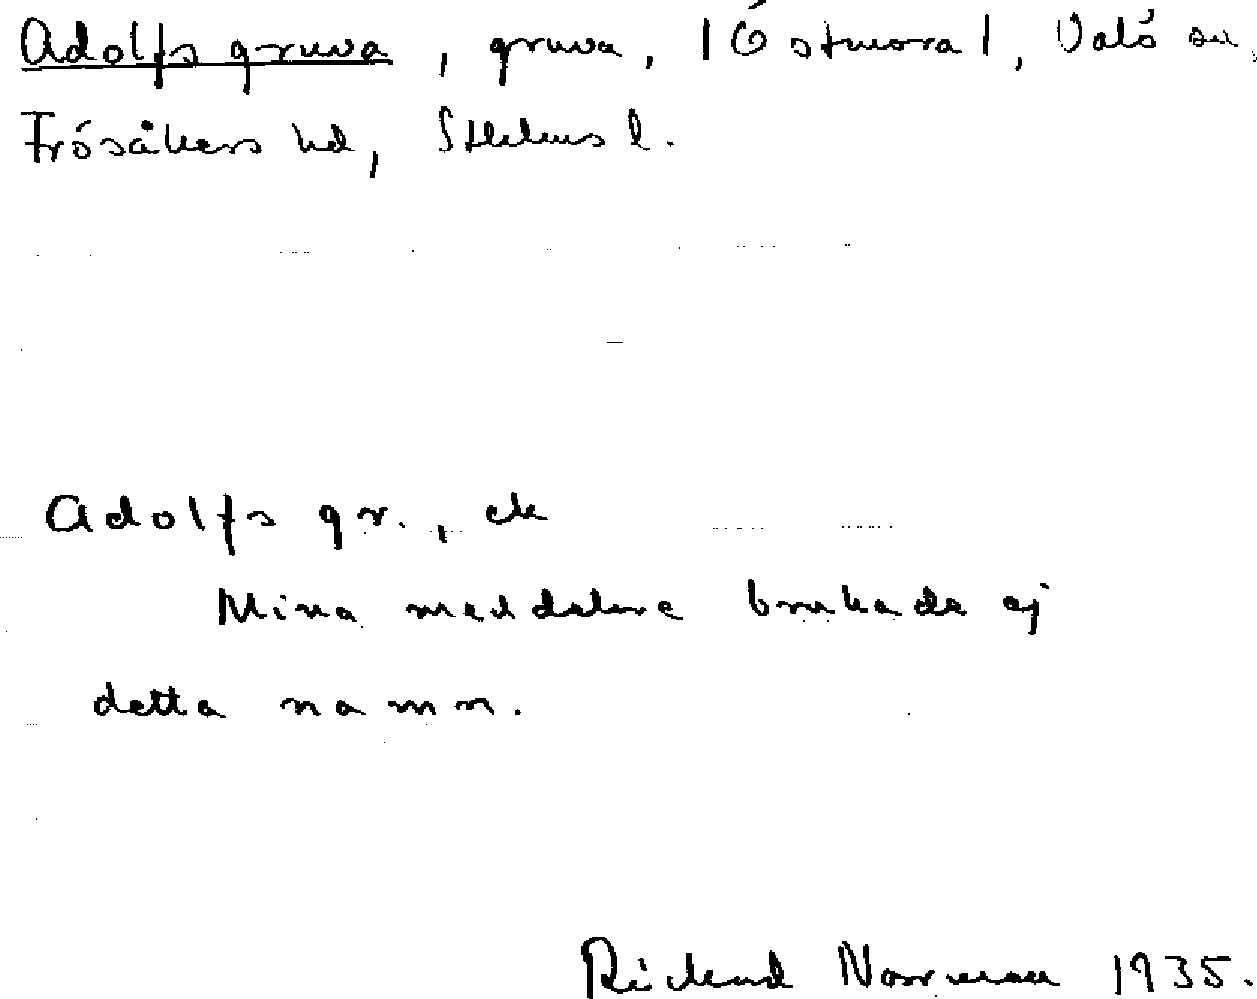 Adolfs gruva, gruva, |Östmora|, Valö sn,
Frösåkers hd, Sthlms l.
Adolfs gr., ek
Mina meddelare brukade ej
detta namn.
Richard Norrman 1935.